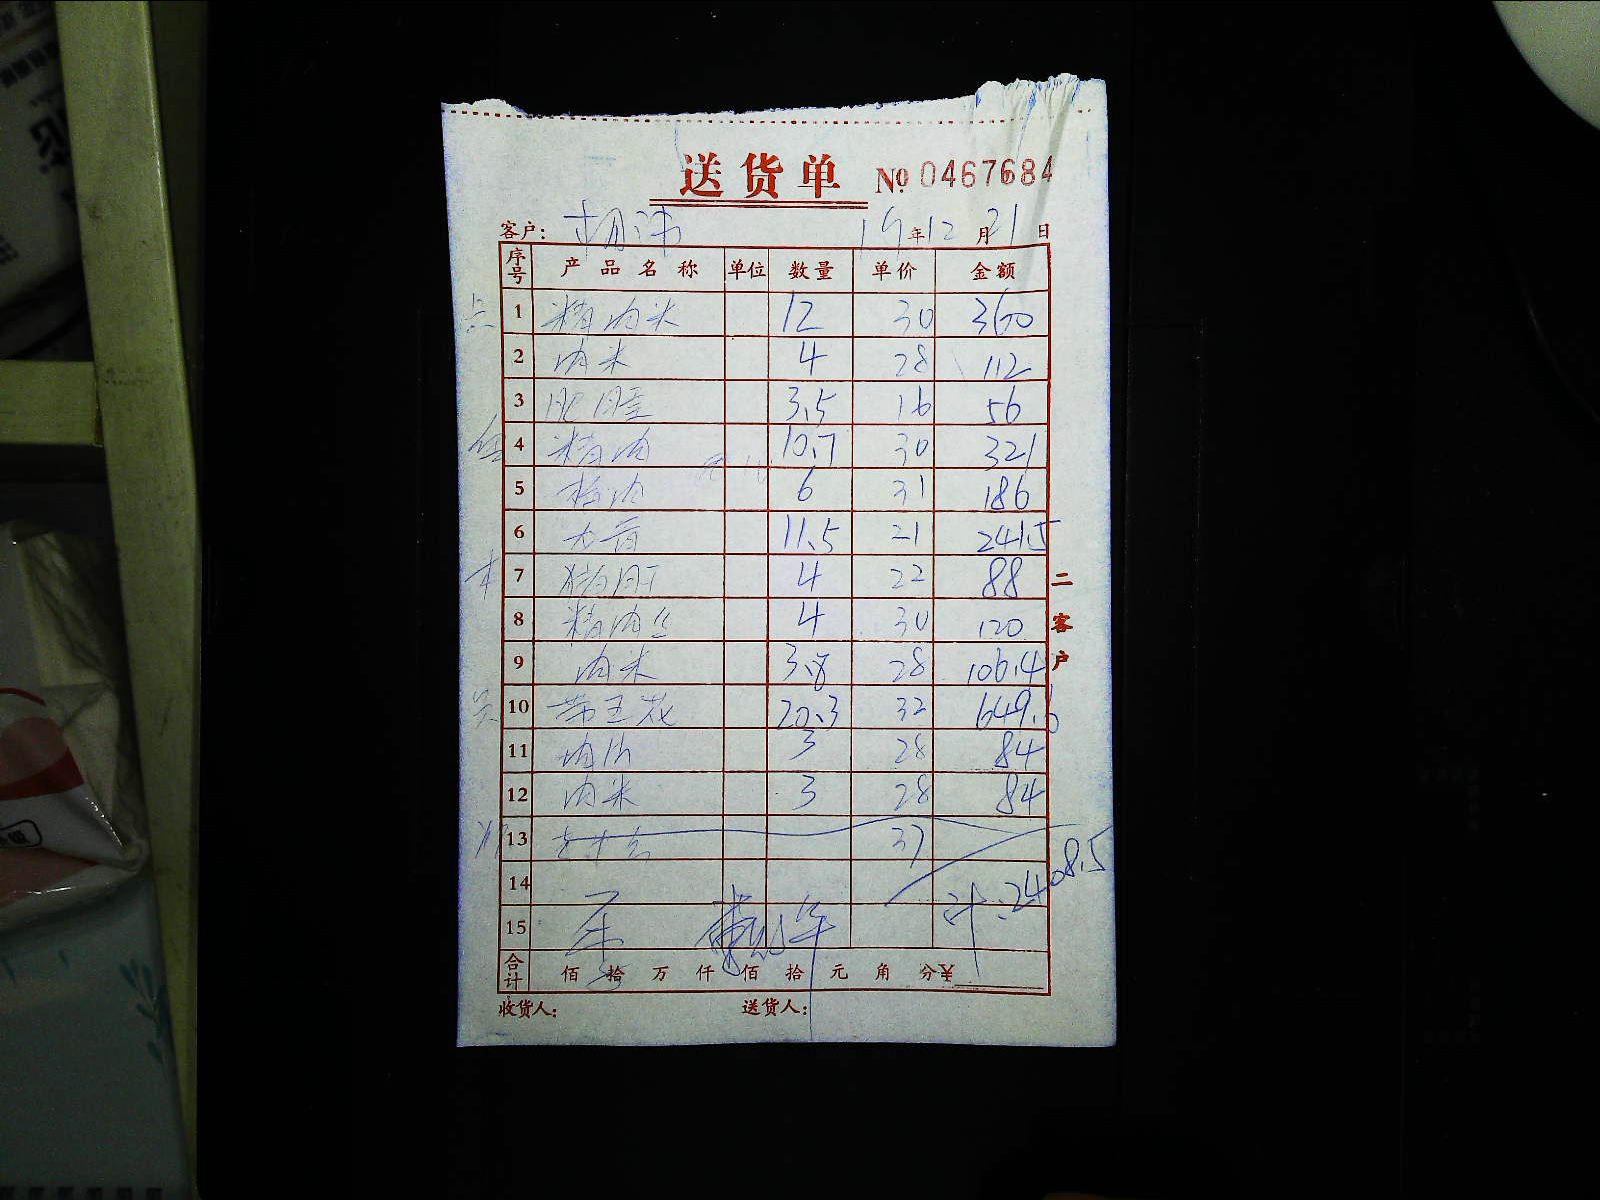 送货单 № 0467684
客户: 19年12月21日
序号 产品名称 单位 数量 单价 金额
1 精肉米 12 30 360
2 肉米 4 28 112
3 肥膛 3.5 16 56
4 精肉 10.7 30 321
5 梅肉 6 31 186
6 大骨 11.5 21 241.5
7 猪肝 4 22 88
8 精肉丝 4 30 120
9 肉米 3.8 28 106.4
10 带玉花 20.3 32 649.6
11 28 84
3
12 肉米 3 28 84
13 37
14
计:2408.5
15
合计 佰 拾 万 仟 佰 拾 元 角 分¥
收货人: 送货人:
二客户